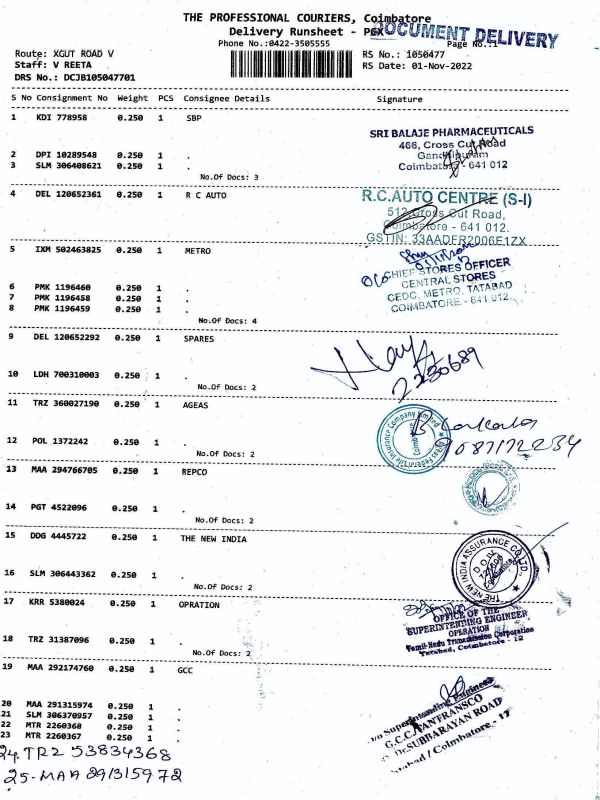 THE PROFESSIONAL COURIERS, Coimbatore
Delivery Runsheet - PGX
DOCUMENT DELIVERY
Phone No.:0422-3505555
Page No.:1
Route: XGUT ROAD V
RS No.: 1050477
Staff: V REETA
RS Date: 01-Nov-2022
DRS No.: DCJB105047701
S No Consignment No Weight PCS Consignee Details Signature
1 KDI 778958 0.250 1 SBP
SRI BALAJE PHARMACEUTICALS
466, Cross Cut Road
Gandhipuram
Coimbatore - 641 012
2 DPI 10289548 0.250 1 .
3 SLM 306408621 0.250 1 .
No.Of Docs: 3
4 DEL 120652361 0.250 1 R C AUTO
R.C.AUTO CENTRE (S-I)
512, Cross Cut Road,
Coimbatore - 641 012.
GSTIN: 33AADFR2006E1ZX
5 IXM 502463825 0.250 1 METRO
CHIEF STORES OFFICER
CENTRAL STORES
CEDC, METRO, TATABAD
COIMBATORE - 641 012.
6 PMK 1196460 0.250 1 .
7 PMK 1196458 0.250 1 .
8 PMK 1196459 0.250 1 .
No.Of Docs: 4
9 DEL 120652292 0.250 1 SPARES
2230689
10 LDH 700310003 0.250 1 .
No.Of Docs: 2
11 TRZ 360027190 0.250 1 AGEAS
9087172234
12 POL 1372242 0.250 1 .
No.Of Docs: 2
13 MAA 294766705 0.250 1 REPCO
14 PGT 4522096 0.250 1 .
No.Of Docs: 2
15 DDG 4445722 0.250 1 THE NEW INDIA
THE NEW INDIA ASSURANCE CO. LTD.
16 SLM 306443362 0.250 1 .
No.Of Docs: 2
17 KRR 5380024 0.250 1 OPRATION
OFFICE OF THE
SUPERINTENNING ENGINEER
OPERATION
Tamil-Nadu Transmission Corporation
Tatabad, Coimbatore - 12
18 TRZ 31387096 0.250 1 .
No.Of Docs: 2
19 MAA 292174760 0.250 1 GCC
G.C.C./TANTRANSCO
Dr.SUBBARAYAN ROAD
Coimbatore - 12
20 MAA 291315974 0.250 1 .
21 SLM 306370957 0.250 1 .
22 MTR 2260368 0.250 1 .
23 MTR 2260367 0.250 1 .
24.TRZ 53834368
25-MAA 291315972